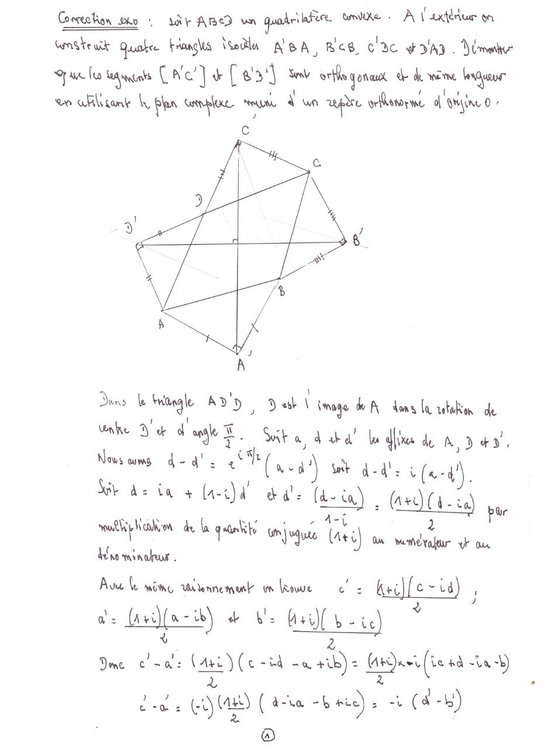 Correction exo : soit ABCD un quadrilatère convexe. A l'extérieur on
construit quatre triangles isocèles A'BA, B'CB, C'DC et D'AD. Démontrer
que les segments [A'C'] et [B'D'] sont orthogonaux et de même longueur
en utilisant le plan complexe muni d'un repère orthonormé d'origine O.
C'
C
D
D'
B'
B
A
A'
Dans le triangle AD'D, D est l'image de A dans la rotation de
centre D' et d'angle π/2. Soit a, d et d' les affixes de A, D et D'.
Nous avons d-d' = e^(iπ/2) (a-d') soit d-d' = i(a-d').
Soit d = ia + (1-i)d' et d' = (d-ia)/(1-i) = (1+i)(d-ia)/2 par
multiplication de la quantité conjuguée (1+i) au numérateur et au
dénominateur.
Avec le même raisonnement on trouve c' = (1+i)(c-id)/2 ;
a' = (1+i)(a-ib)/2 et b' = (1+i)(b-ic)/2
Donc c'-a' = (1+i)/2 (c-id-a+ib) = (1+i)/2 x-i(ic+d-ia-b)
c'-a' = (-i) (1+i)/2 (d-ia-b+ic) = -i (d'-b')
1